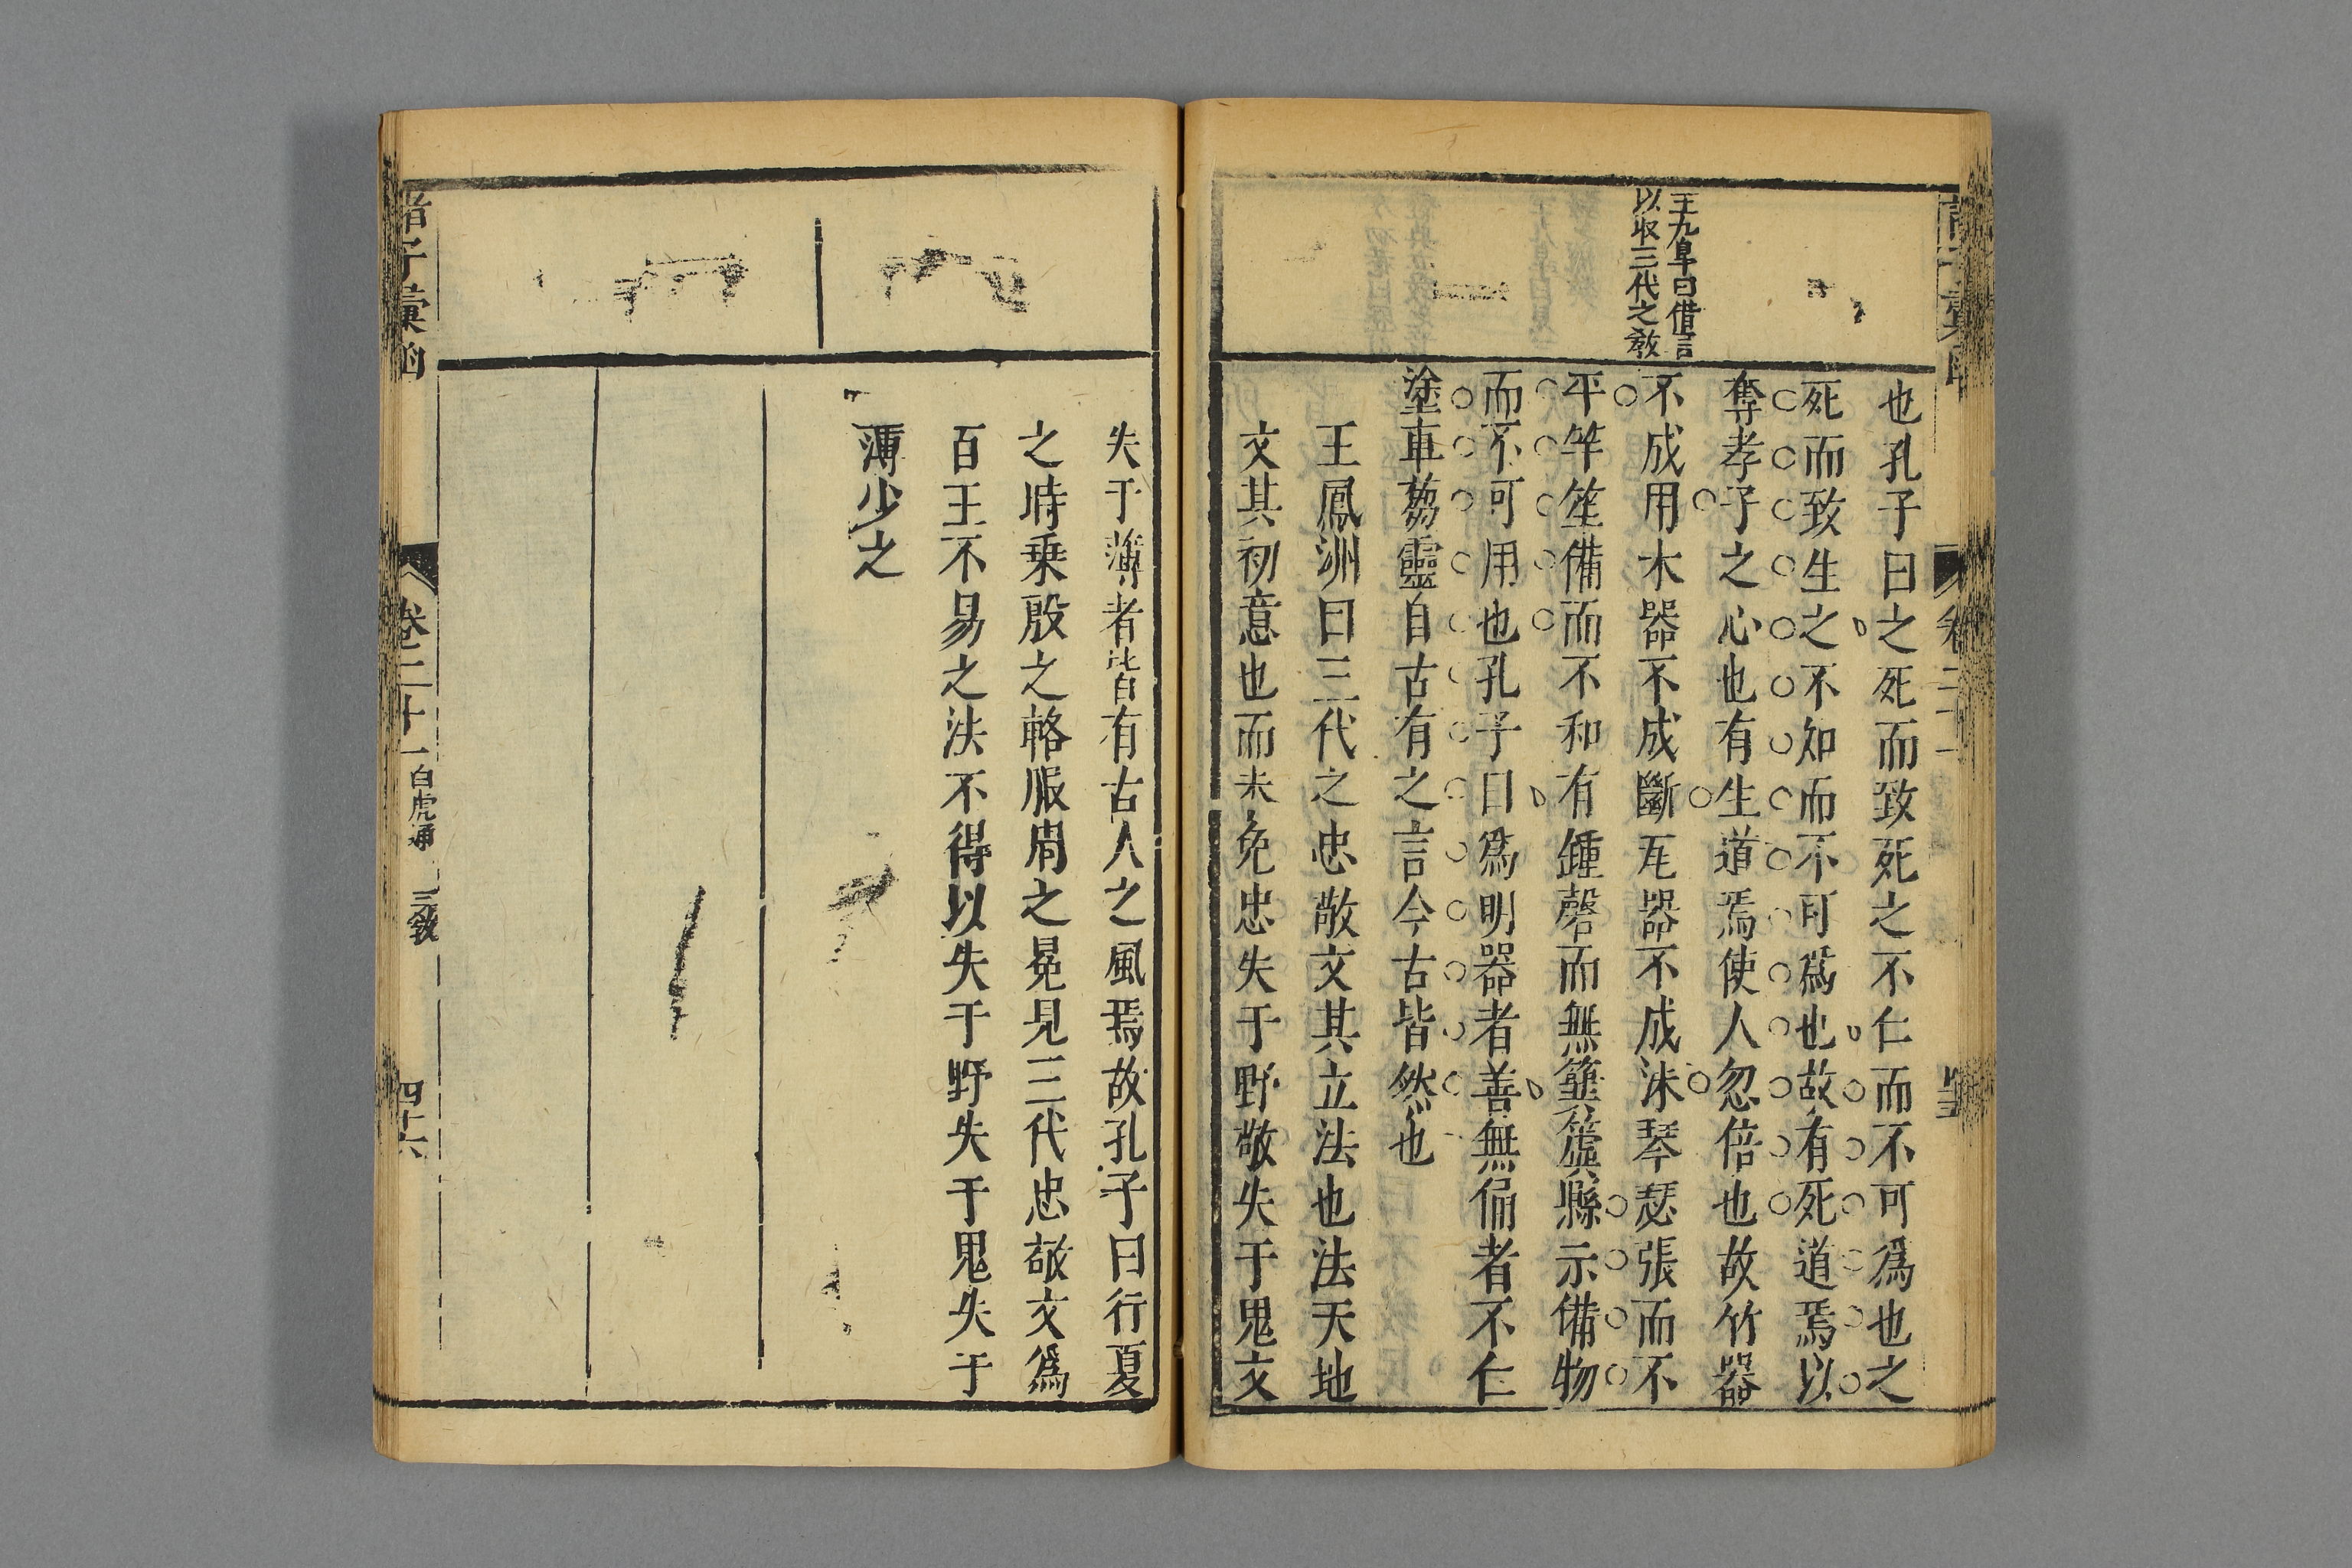 王九皐曰借言
以収三代之敎
也孔子曰之死而致死之不仁而不可爲也之
死而致生之不知而不可爲也故有死道焉以
奪孝子之心也有生道焉使人忽倍也故竹器
不成用木器不成斲瓦器不成沬琴瑟張而不
平竽笙備而不和有鍾磬而無簨簴縣示備物
而不可用也孔子曰爲明器者善無俑者不仁
塗車芻靈自古有之言今古皆然也
王鳳洲曰三代之忠敬文其立法也法天地
文其初意也而未免忠失于野敬失于鬼文
失于薄者皆有古人之風焉故孔子曰行夏
之時乗殷之輅服周之冕見三代忠敬文爲
百王不易之法不得以失于野失于鬼失于
薄少之
諸子彙函
卷二十一
白虎通
三敎
四十六